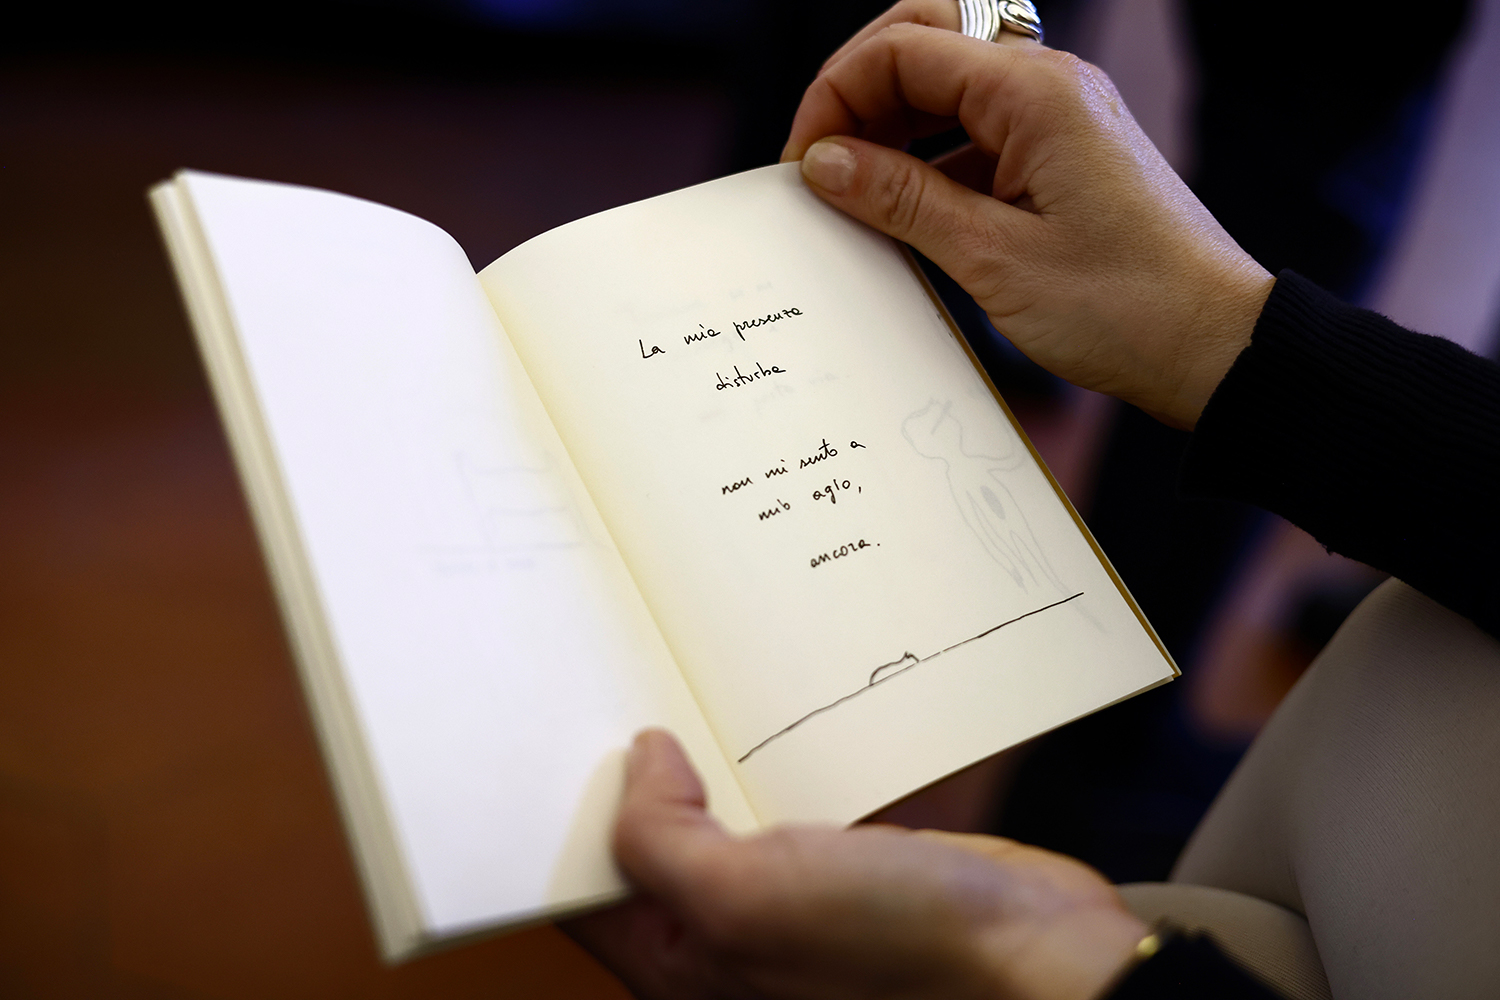 La mia presenza
disturba
non mi sento a
mio agio,
ancora.